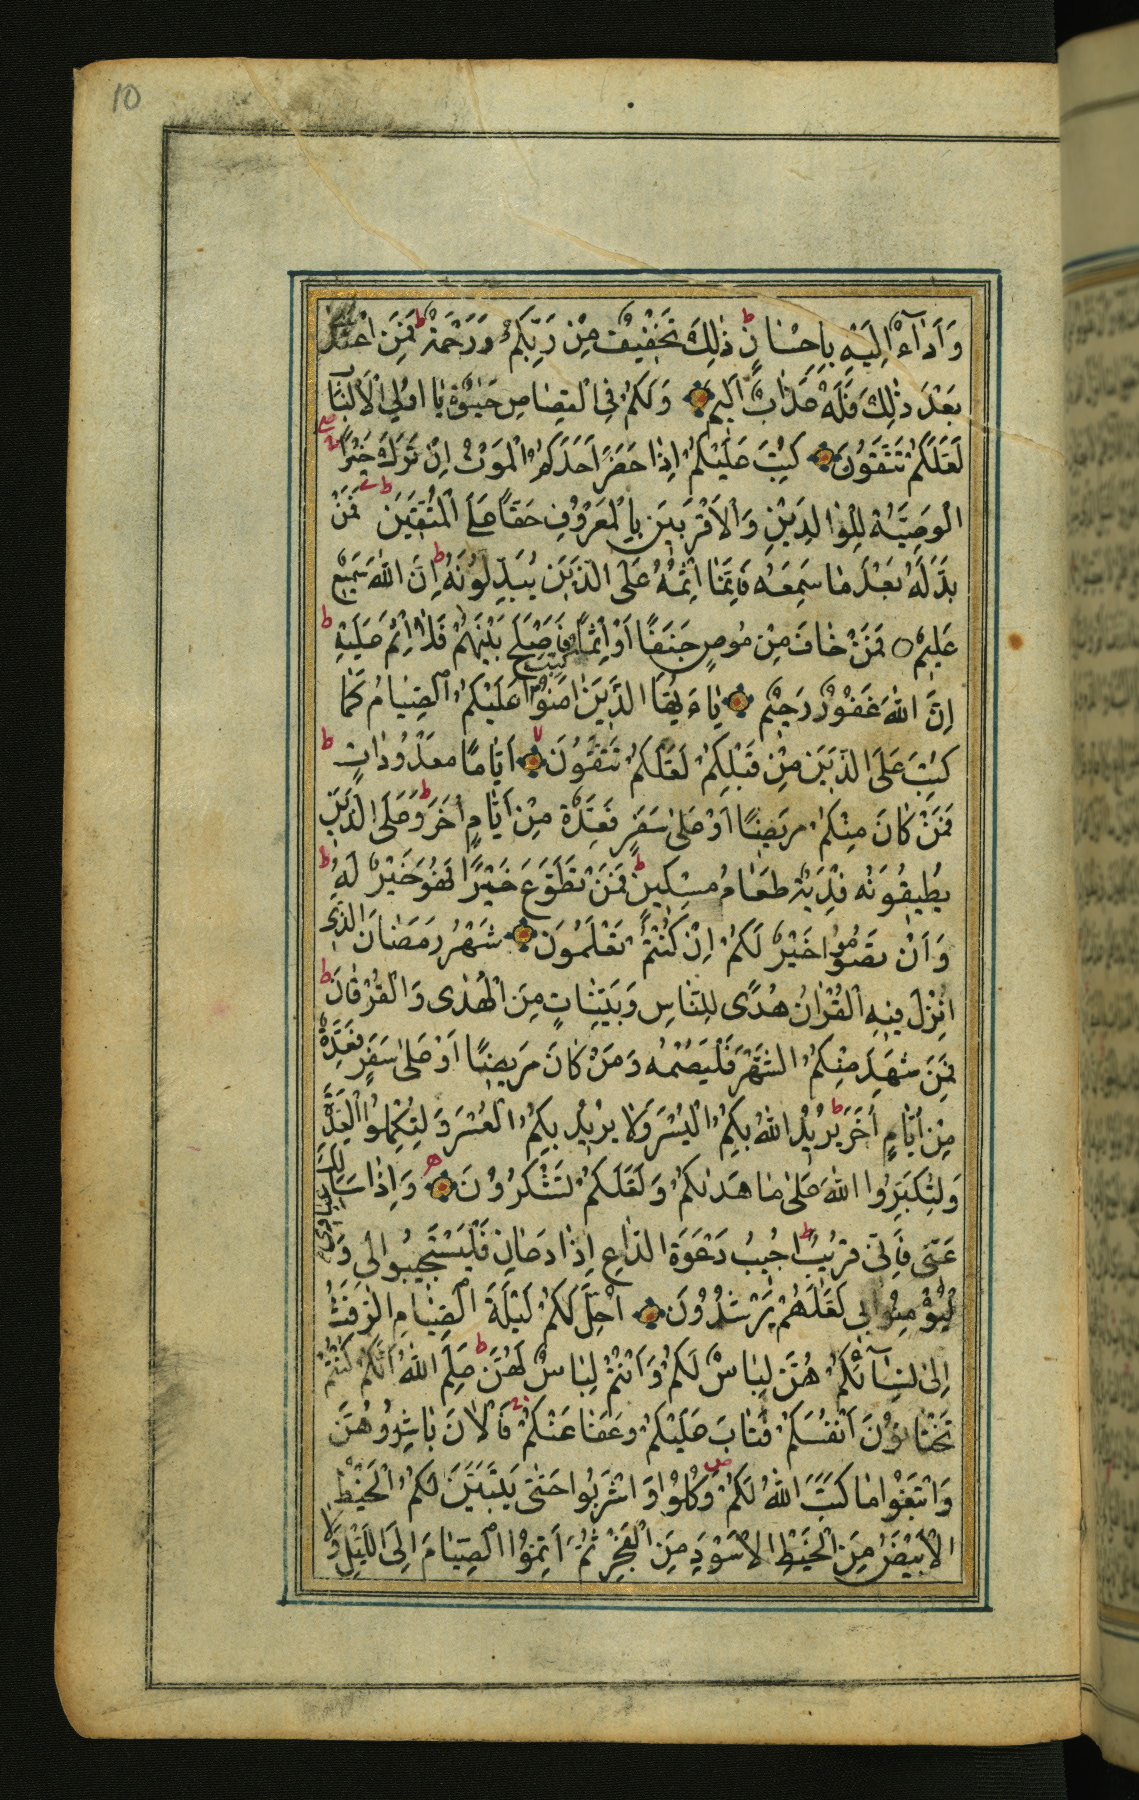 10
وَاَدٰآءٌ اِلَيْهِ بِاِحْسٰانٍ ط ذٰلِكَ تَخْفِيفٌ مِنْ رَبِّكُمْ وَرَحْمَةٌ ط فَمَنِ اعْتَدٰى
بَعْدَ ذٰلِكَ فَلَهُ عَذٰابٌ اَلِيمٌ وَلَكُمْ فِى الْقِصٰاصِ حَيٰوةٌ يٰا اُولِي الْاَلْبٰابِ
لَعَلَّكُمْ تَتَّقُونَ كُتِبَ عَلَيْكُمْ اِذٰا حَضَرَ اَحَدَكُمُ الْمَوْتُ اِنْ تَرَكَ خَيْرًا
الْوَصِيَّةُ لِلْوٰالِدَيْنِ وَالْاَقْرَبِينَ بِالْمَعْرُوفِ حَقًّا عَلَى الْمُتَّقِينَ ط فَمَنْ
بَدَّلَهُ بَعْدَ مٰا سَمِعَهُ فَاِنَّمٰا اِثْمُهُ عَلَى الَّذِينَ يُبَدِّلُونَهُ ط اِنَّ اللّٰهَ سَمِيعٌ
عَلِيمٌ فَمَنْ خٰافَ مِنْ مُوصٍ جَنَفًا اَوْ اِثْمًا فَاَصْلَحَ بَيْنَهُمْ فَلٰا اِثْمَ عَلَيْهِ ط
اِنَّ اللّٰهَ غَفُورٌ رَحِيمٌ يٰاءَيُّهَا الَّذِينَ اٰمَنُوا كُتِبَ عَلَيْكُمُ الصِّيٰامُ كَمٰا
كُتِبَ عَلَى الَّذِينَ مِنْ قَبْلِكُمْ لَعَلَّكُمْ تَتَّقُونَ لا اَيّٰامًا مَعْدُودٰاتٍ ط
فَمَنْ كٰانَ مِنْكُمْ مَرِيضًا اَوْ عَلىٰ سَفَرٍ فَعِدَّةٌ مِنْ اَيّٰامٍ اُخَرَ ط وَعَلَى الَّذِينَ
يُطِيقُونَهُ فِدْيَةٌ طَعٰامُ مِسْكِينٍ ط فَمَنْ تَطَوَّعَ خَيْرًا فَهُوَ خَيْرٌ لَهُ ط
وَاَنْ تَصُومُوا خَيْرٌ لَكُمْ اِنْ كُنْتُمْ تَعْلَمُونَ شَهْرُ رَمَضٰانَ الَّذِى
اُنْزِلَ فِيهِ الْقُرْاٰنُ هُدًى لِلنّٰاسِ وَبَيِّنٰاتٍ مِنَ الْهُدٰى وَالْفُرْقٰانِ ط
فَمَنْ شَهِدَ مِنْكُمُ الشَّهْرَ فَلْيَصُمْهُ وَمَنْ كٰانَ مَرِيضًا اَوْ عَلىٰ سَفَرٍ فَعِدَّةٌ
مِنْ اَيّٰامٍ اُخَرَ ط يُرِيدُ اللّٰهُ بِكُمُ الْيُسْرَ وَلٰا يُرِيدُ بِكُمُ الْعُسْرَ وَلِتُكْمِلُوا الْعِدَّةَ
وَلِتُكَبِّرُوا اللّٰهَ عَلىٰ مٰا هَدٰىكُمْ وَلَعَلَّكُمْ تَشْكُرُونَ وَاِذٰا سَاَلَكَ عِبٰادِى
عَنِّى فَاِنِّى قَرِيبٌ ط اُجِيبُ دَعْوَةَ الدّٰاعِ اِذٰا دَعٰانِ فَلْيَسْتَجِيبُوا لِى وَ
لْيُؤْمِنُوا بِى لَعَلَّهُمْ يَرْشُدُونَ اُحِلَّ لَكُمْ لَيْلَةَ الصِّيٰامِ الرَّفَثُ
اِلىٰ نِسٰآئِكُمْ هُنَّ لِبٰاسٌ لَكُمْ وَاَنْتُمْ لِبٰاسٌ لَهُنَّ ط عَلِمَ اللّٰهُ اَنَّكُمْ كُنْتُمْ
تَخْتٰانُونَ اَنْفُسَكُمْ فَتٰابَ عَلَيْكُمْ وَعَفٰا عَنْكُمْ ج فَالْاٰنَ بٰاشِرُوهُنَّ
وَابْتَغُوا مٰا كَتَبَ اللّٰهُ لَكُمْ ص وَكُلُوا وَاشْرَبُوا حَتّٰى يَتَبَيَّنَ لَكُمُ الْخَيْطُ
الْاَبْيَضُ مِنَ الْخَيْطِ الْاَسْوَدِ مِنَ الْفَجْرِ ثُمَّ اَتِمُّوا الصِّيٰامَ اِلَى اللَّيْلِ وَلٰا